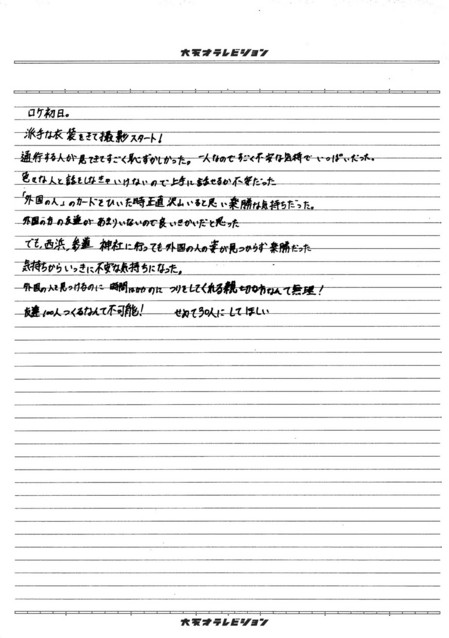 大天才テレビジョン
ロケ初日。
派手な衣装をきて撮影スタート!
通行する人が見てきてすごく恥ずかしかった。一人なのですごく不安な気持でいっぱいだった。
色々な人と話をしなきゃいけないので上手に話せるか不安だった
「外国の人」のカードをひいた時正直沢山いると思い楽勝な気持ちだった。
外国の方の友達があまりいないので良いきかいだと思った
でも、西浜、参道 神社に行っても外国の人の姿が見つからず楽勝だった
気持ちからいっきに不安な気持ちになった。
外国の人を見つけるのに 時間かかのに つりをしてくれる親切な方なんて無理!
友達100人つくるなんて不可能! せめて50人にしてほしい
大天才テレビジョン